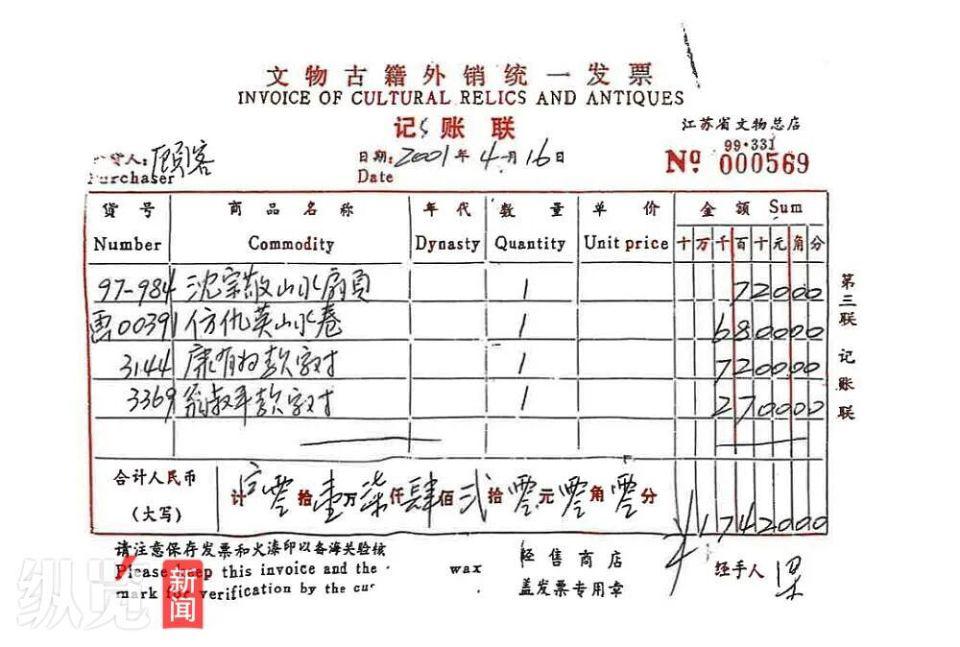 文物古籍外销统一发票
INVOICE OF CULTURAL RELICS AND ANTIQUES
记账联
江苏省文物总店
货人:顾客
Purchaser
日期:2001年4月16日
Date
99·331
Nº 000569
货号 商品名称 年代 数量 单价 金额 Sum
Number Commodity Dynasty Quantity Unit price 十万千百十元角分
97-984 沈宗敬山水扇页 1 72000
00391 仿仇英山水卷 1 680000
3144 康有为款字对 1 720000
3369 翁叔平款字对 1 270000
第三联 记账联
合计人民币
(大写)
计 零拾壹万柒仟肆佰贰拾零元零角零分
¥1742000
请注意保存发票和火漆印以备海关验核
Please keep this invoice and the wax
mark for verification by the cus
经售商店
盖发票专用章
经手人 梁
纵览新闻